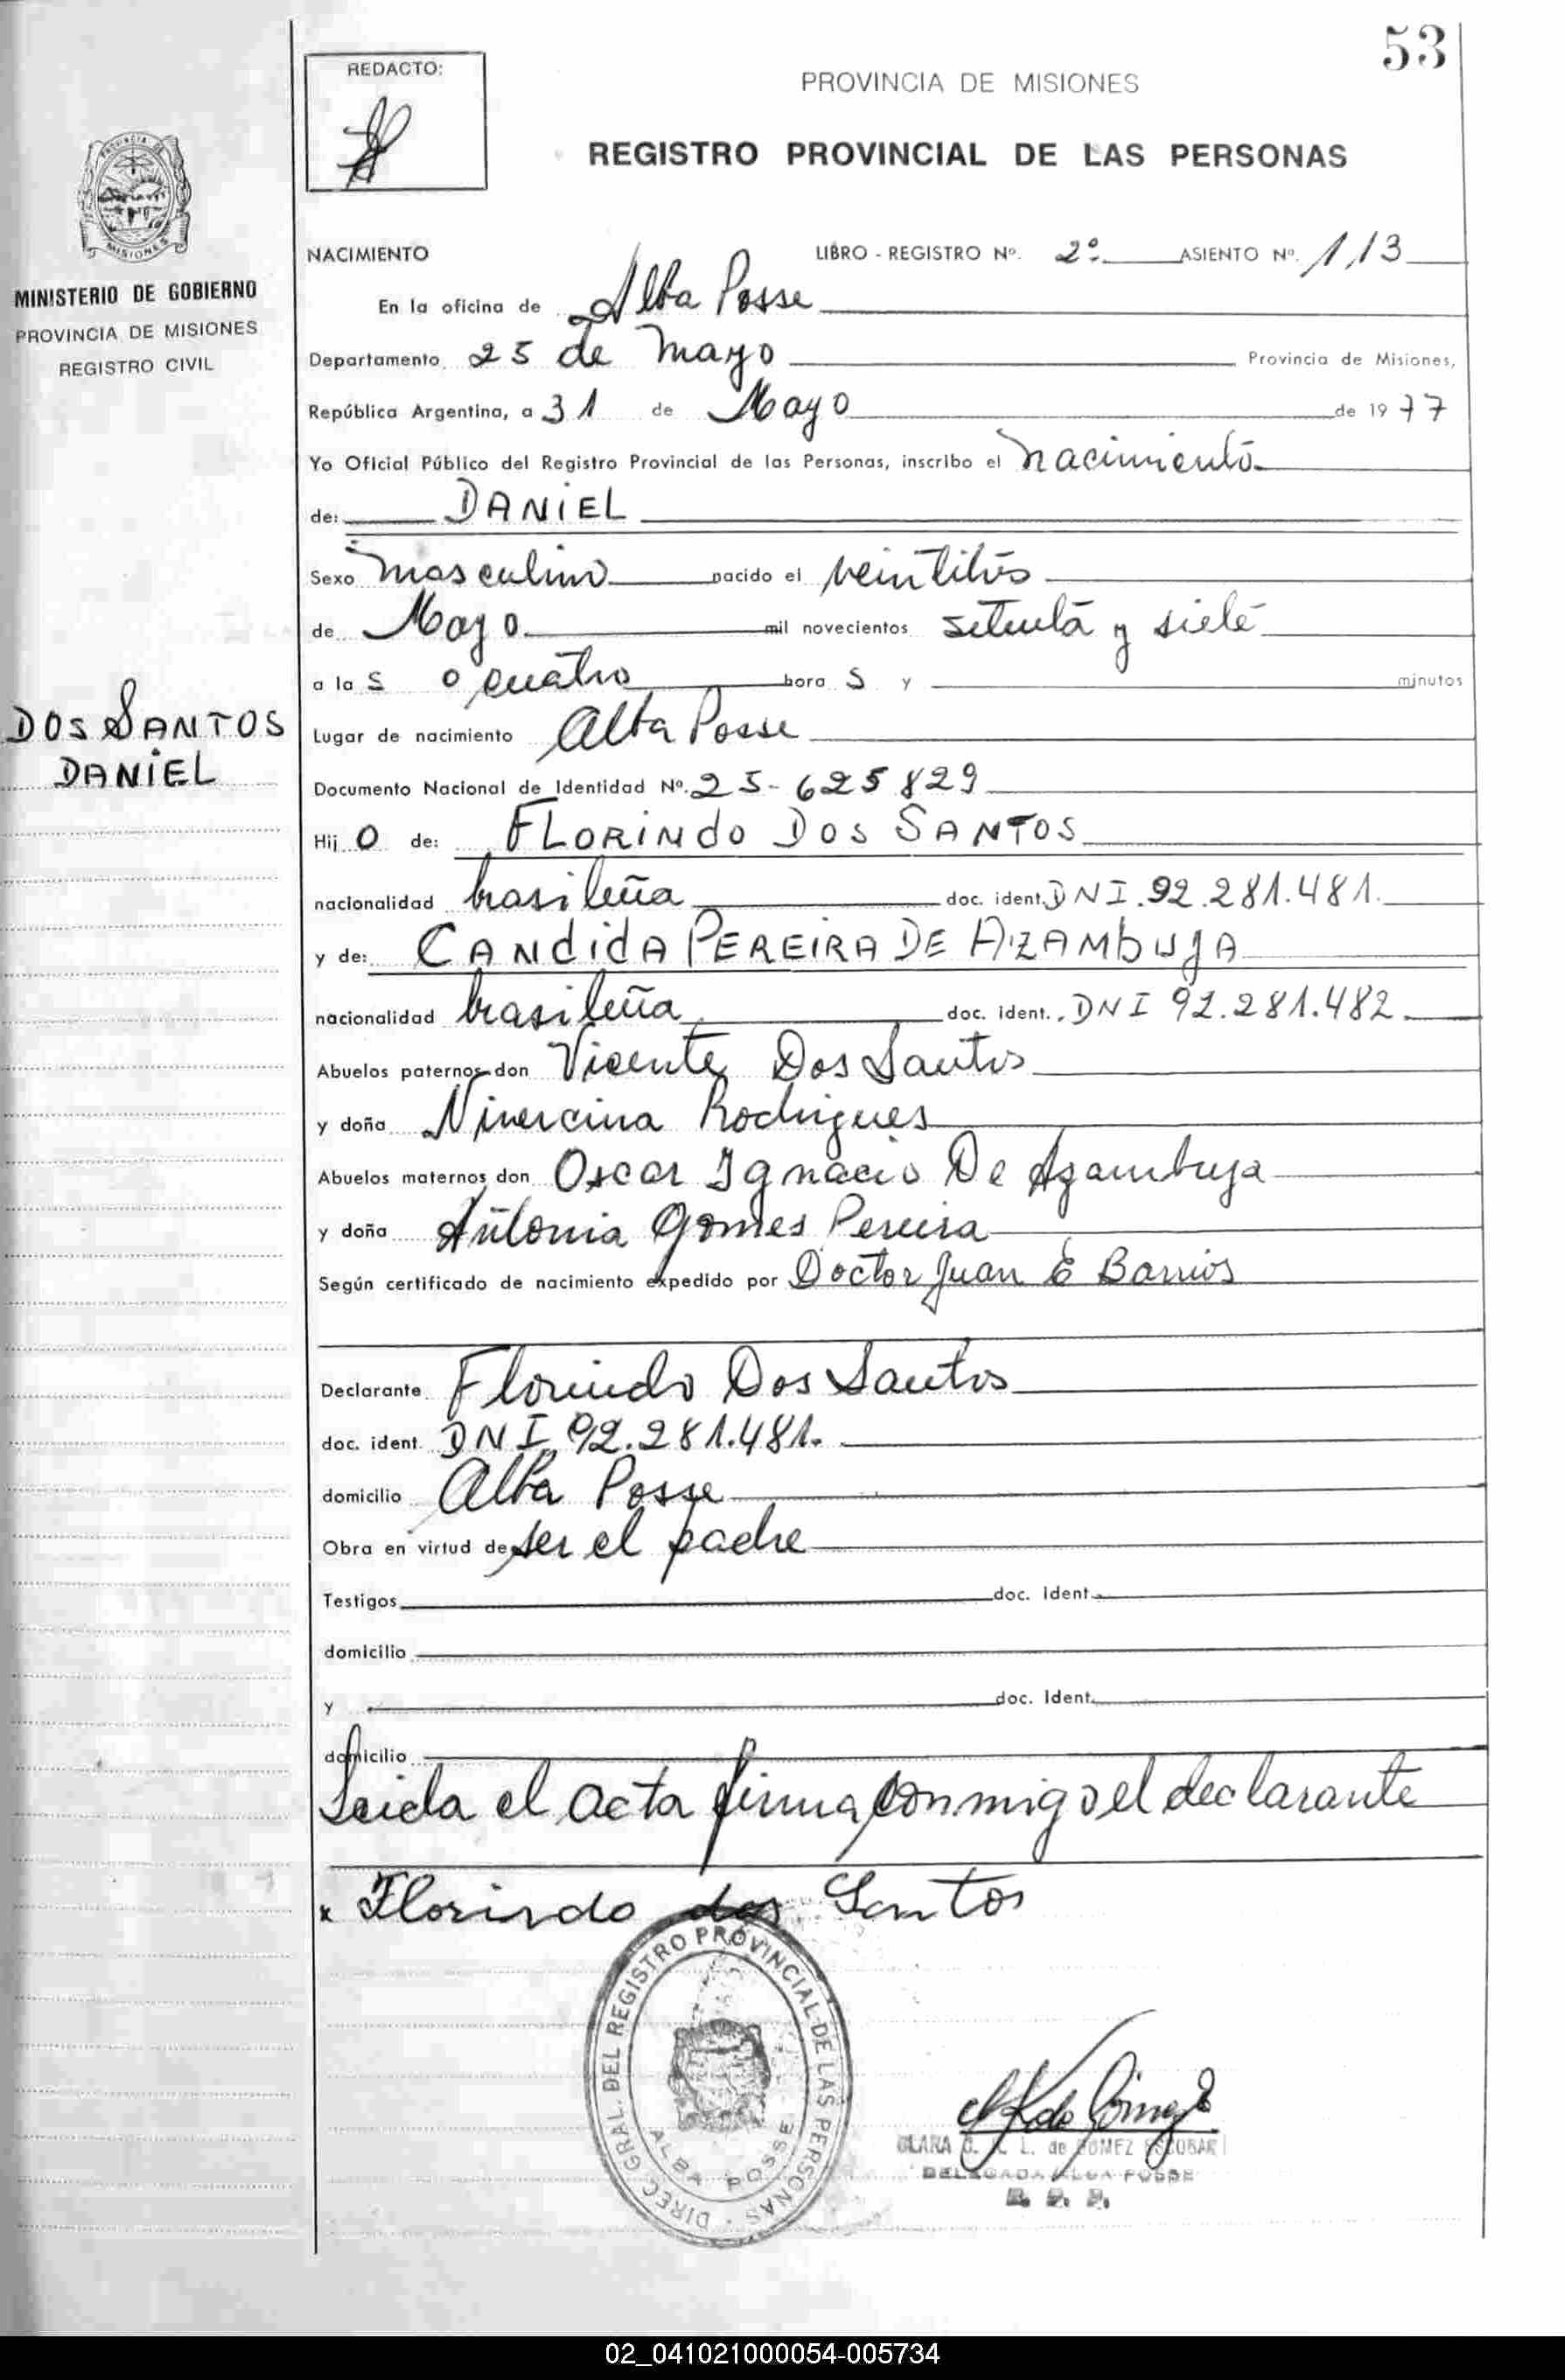 53
REDACTO:
PROVINCIA DE MISIONES
REGISTRO PROVINCIAL DE LAS PERSONAS
MINISTERIO DE GOBIERNO
PROVINCIA DE MISIONES
REGISTRO CIVIL
DOS SANTOS
DANIEL
NACIMIENTO LIBRO - REGISTRO Nº. 2º ASIENTO Nº. 113
En la oficina de Alba Posse
Departamento 25 de Mayo Provincia de Misiones,
República Argentina, a 31 de Mayo de 1977
Yo Oficial Público del Registro Provincial de las Personas, inscribo el nacimiento
de: DANIEL
Sexo masculino nacido el veintitrés
de Mayo mil novecientos setenta y siete
a las 0 cuatro horas y minutos
Lugar de nacimiento Alba Posse
Documento Nacional de Identidad Nº. 25-625829
Hijo de: FLORINDO DOS SANTOS
nacionalidad brasileña doc. ident. DNI.92.281.481.
y de: CANDIDA PEREIRA DE AZAMBUJA
nacionalidad brasileña doc. ident. DNI 92.281.482
Abuelos paternos don Vicente Dos Santos
y doña Nivercina Rodrigues
Abuelos maternos don Oscar Ignacio De Azambuja
y doña Antonia Gomes Pereira
Según certificado de nacimiento expedido por Doctor Juan E Barrios
Declarante Florindo Dos Santos
doc. ident. DNI 92.281.481.
domicilio Alba Posse
Obra en virtud de ser el padre
Testigos doc. ident.
domicilio
y doc. Ident.
domicilio
Leida el acta firma conmigo el declarante
x Florindo dos Santos
DIREC. GRAL. DEL REGISTRO PROVINCIAL DE LAS PERSONAS
ALBA POSSE
CLARA L. de GOMEZ ESCOBAR
DELEGADA ALBA POSSE
02_041021000054-005734